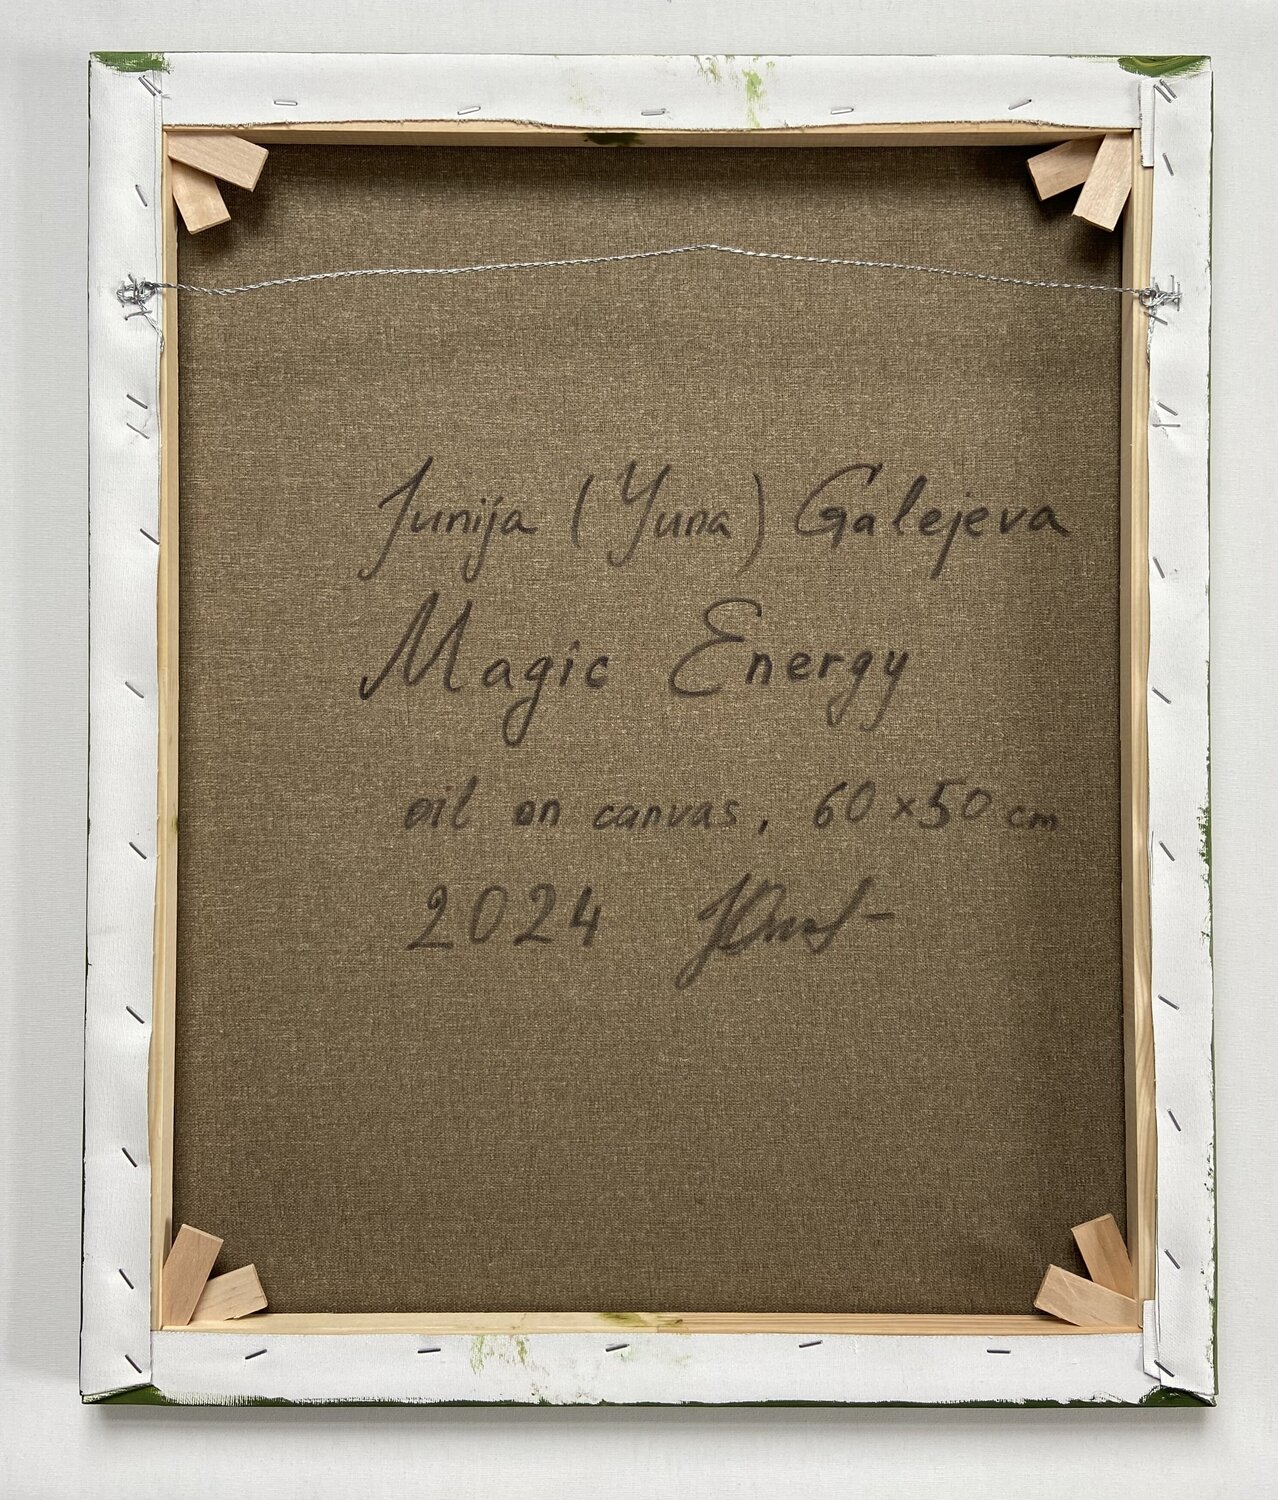 Junija (Yuna) Galejeva
Magic Energy
oil on canvas, 60x50 cm
2024